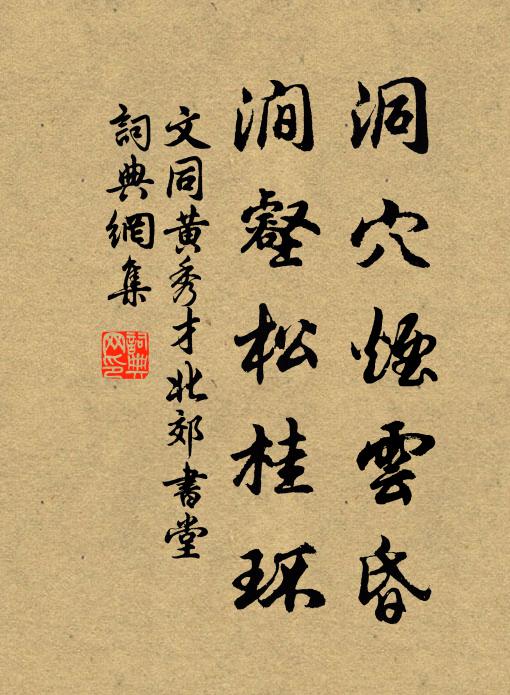 洞穴煙雲昏
澗壑松桂环
文同黄秀才北郊書堂
詞典網集
詞典网印